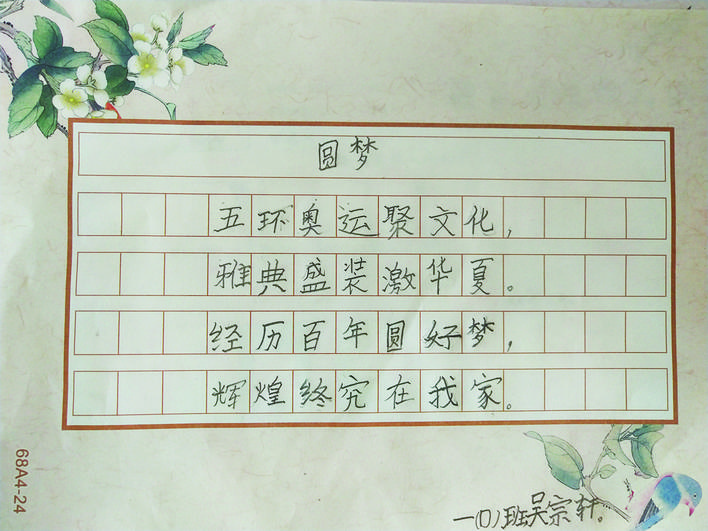 圆梦
五环奥运聚文化,
雅典盛装激华夏。
经历百年圆好梦,
辉煌终究在我家。
68A4-24
一(1)班吴宗轩。